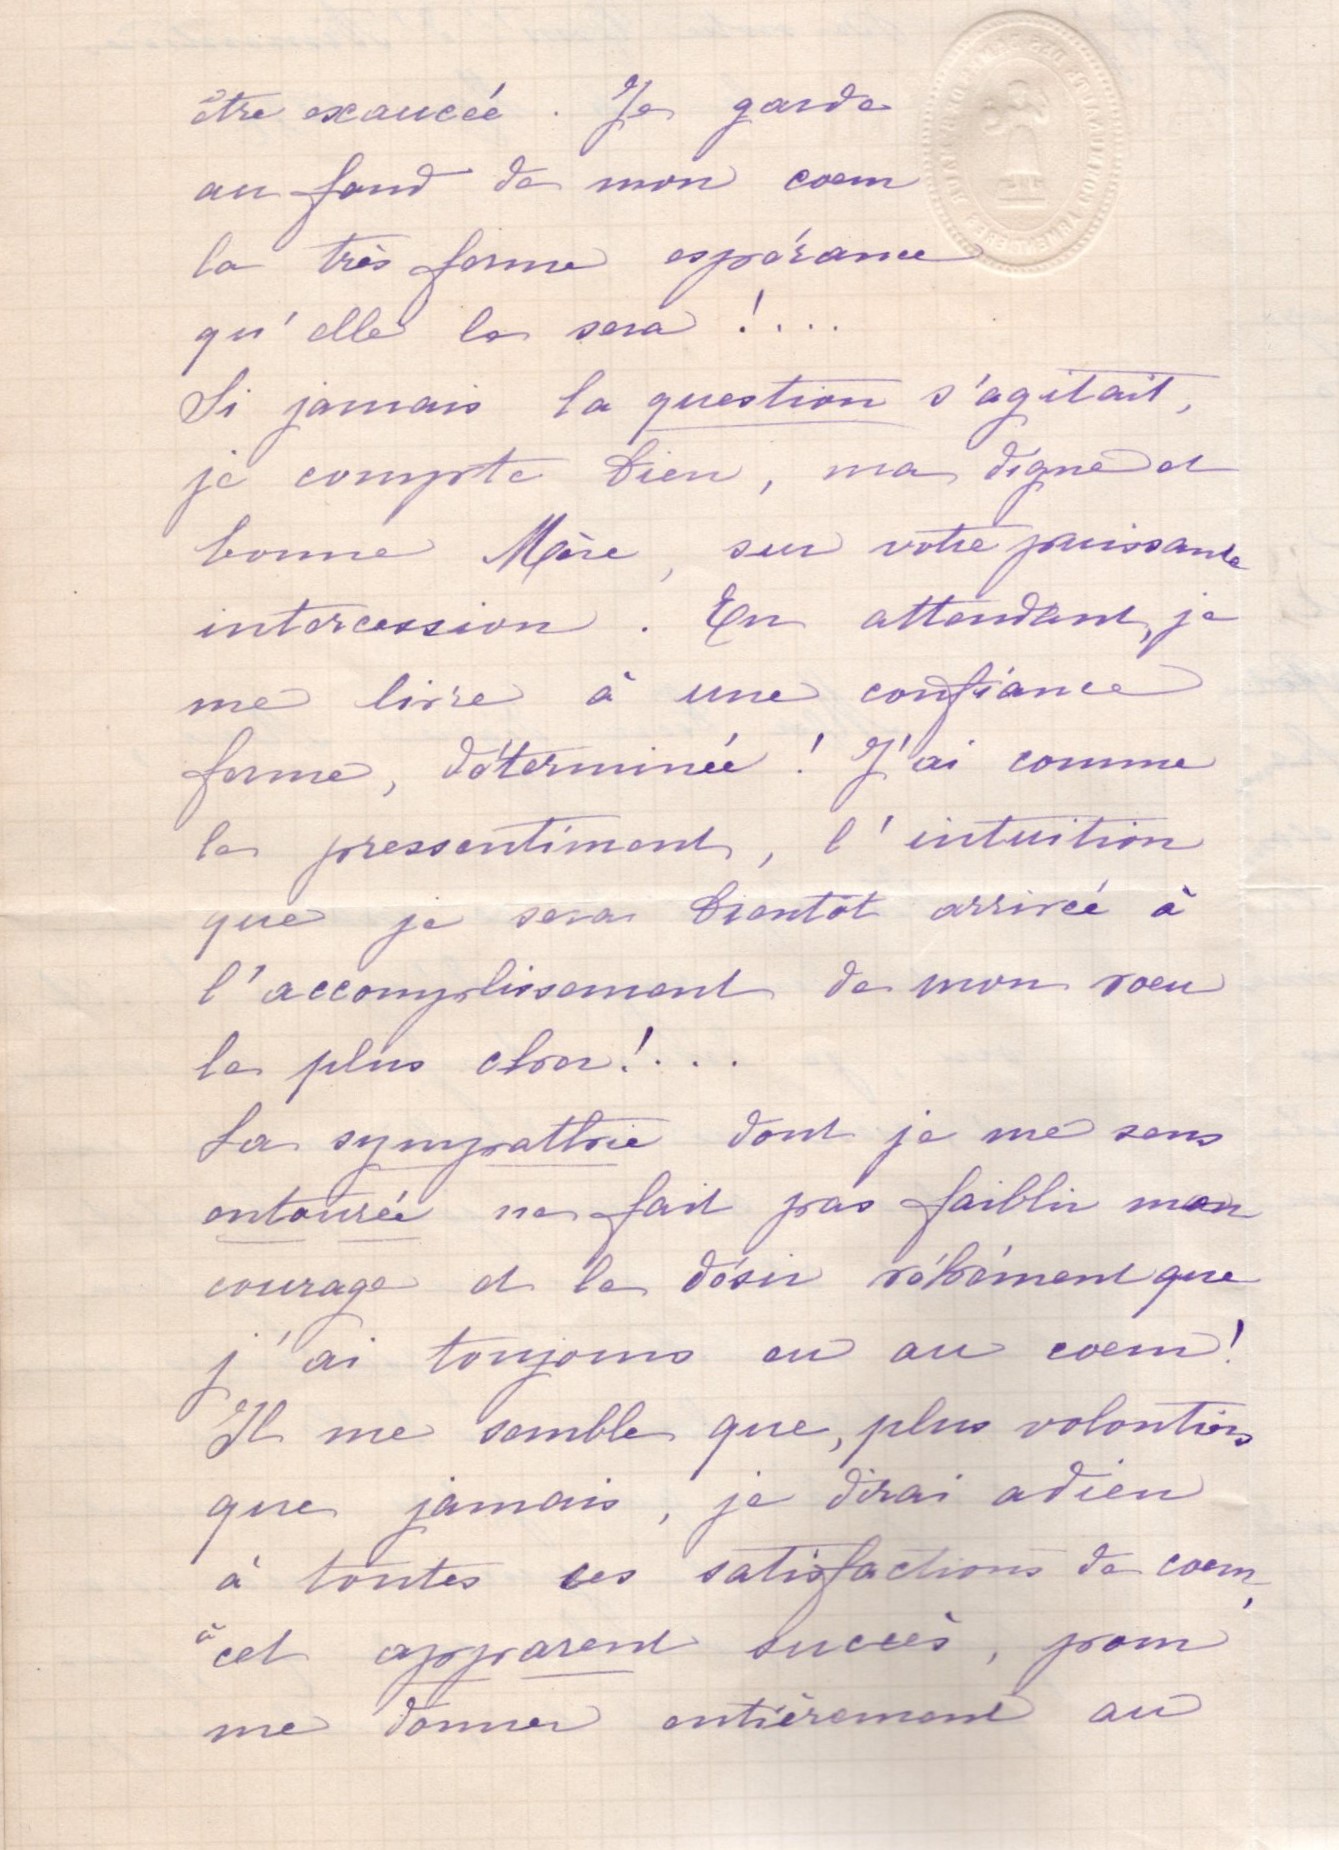 être exaucée. Je garde
au fond de mon coeur
la très ferme espérance
qu'elle le sera !....
Si jamais la question s'agitait,
je compte bien, ma digne et
bonne Mère, sur votre puissante
intercession. En attendant, je
me livre à une confiance
ferme, déterminée ! J'ai comme
le pressentiment, l'intuition
que je serai bientôt arrivée à
l'accomplissement de mon voeu
le plus cher !....
La sympathie dont je me sens
entourée ne fait pas faiblir mon
courage et le désir véhément que
j'ai toujours eu au coeur !
Il me semble que, plus volontiers
que jamais, je dirai adieu
à toutes ces satisfactions de coeur,
à cet apparent succès, pour
me donner entièrement au